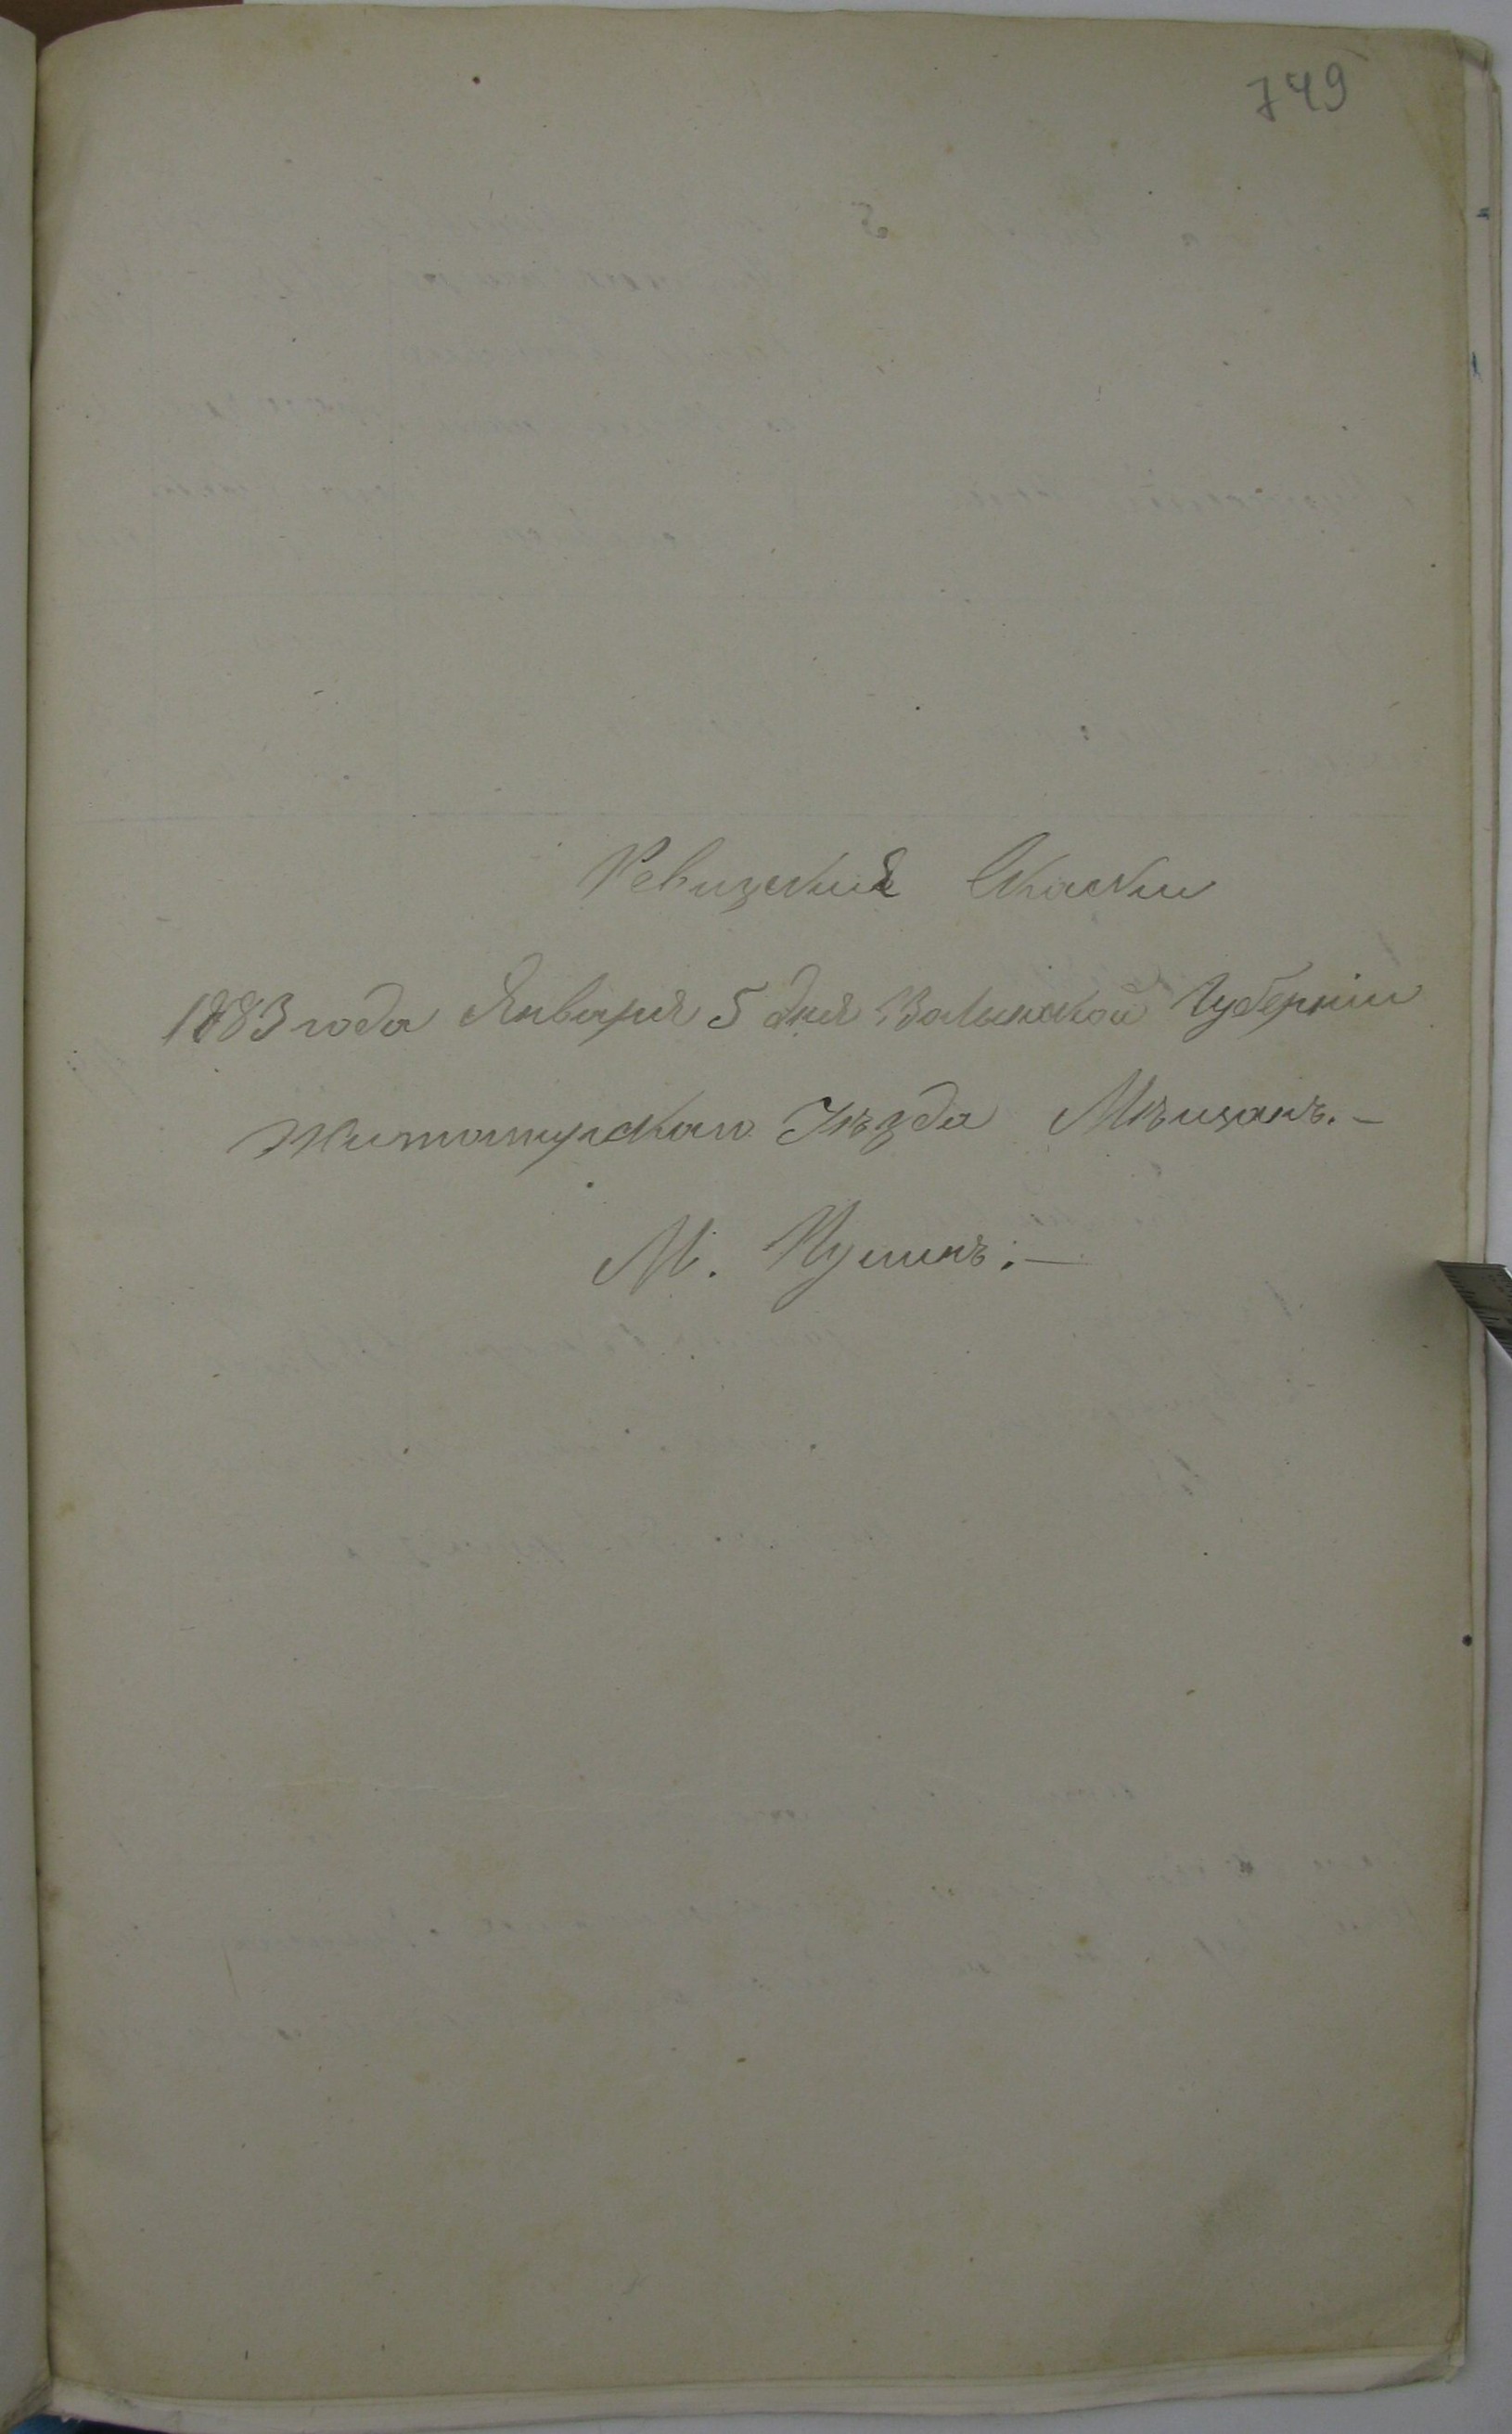 749
Ревизскиѣ Скаски
1883 года Января 5 дня Волынской Губерніи
Житомирскаго Уѣзда Мѣщанъ. —
М. Пулинъ. —